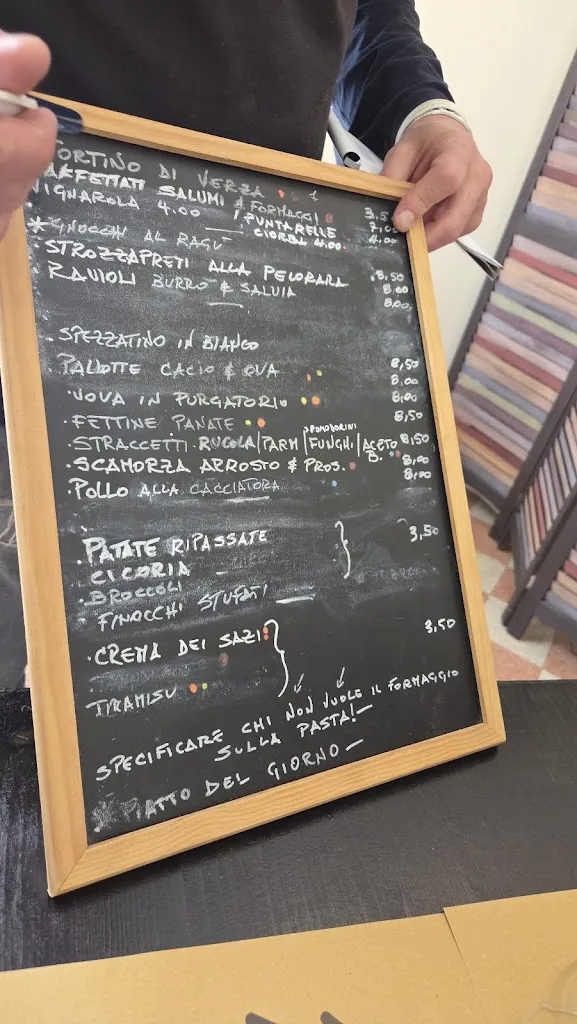 TORTINO DI VERZA
AFFETTATI SALUMI & FORMAGGI 3,5
VIGNAROLA 4.00 PUNTARELLE 7,00
CICORIA 4.00. 4,00
*GNOCCHI AL RAGÙ
STROZZAPRETI ALLA PECORARA 8,50
RAVIOLI BURRO & SALVIA 8,00
8,00
SPEZZATINO IN BIANCO
PALLOTTE CACIO & OVA 8,50
8,00
·UOVA IN PURGATORIO 8,00
·FETTINE PANATE 8,50
POMODORINI
·STRACCETTI RUGOLA/PARM/FUNGHI/ACETO B. 8,50
·SCAMORZA ARROSTO & PROS. 8,00
·POLLO ALLA CACCIATORA 8,00
·PATATE RIPASSATE 3,50
CICORIA
·BROCCOLI
FINOCCHI STUFATI
·CREMA DEI SAZI 3,50
TIRAMISU
SPECIFICARE CHI NON VUOLE IL FORMAGGIO
SULLA PASTA!
* PIATTO DEL GIORNO